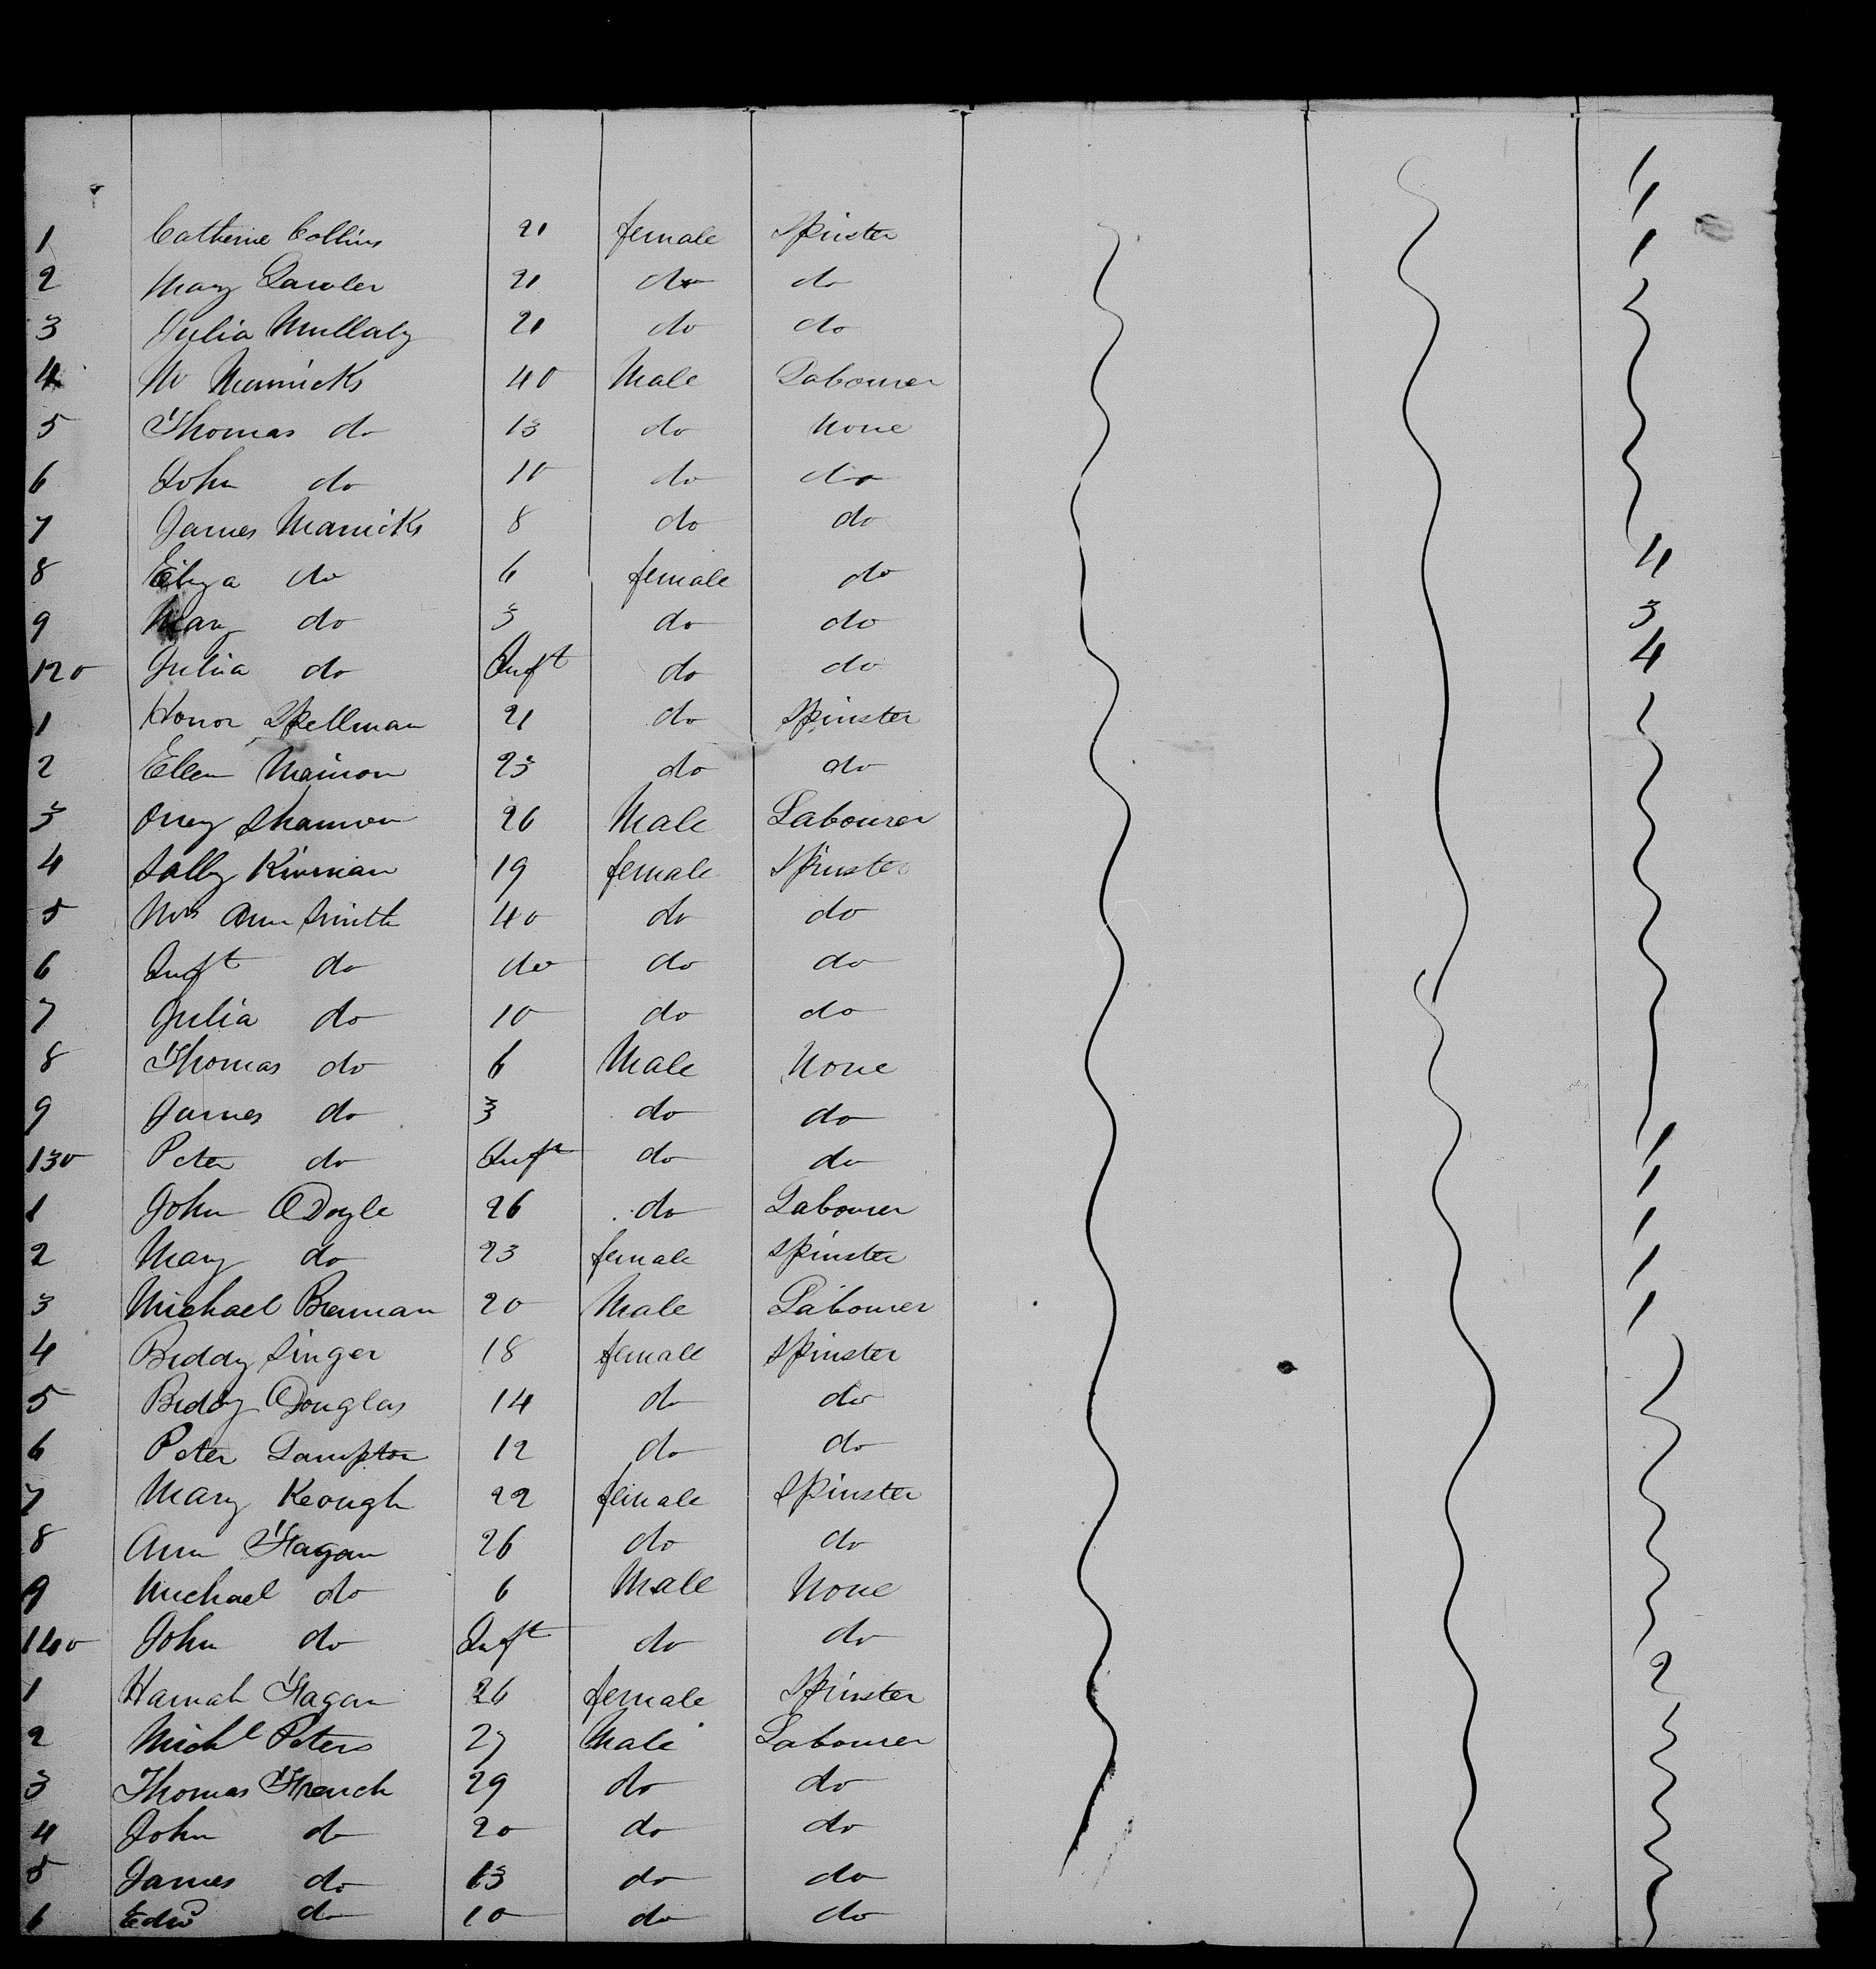 1 Catherine Collins 21 female Spinster 1 1 1
2 Mary Lawler 21 do do
3 Julia Mullaly 21 do do
4 40 Male Labourer
5 Thomas do 13 do None
6 John do 10 do do
7 James Manicks 8 do do
8 Eliza do 6 female do 4
9 Mary do 3 do do 3
120 Julia do Inft do do 4
1 Honor Spellman 21 do Spinster
2 Ellen Mainon 23 do do
3 Shannon 26 Male Labourer
4 Sally Kirwian 19 female Spinster
5 Mrs Ann Smith 40 do do
6 Inft do do do do
7 Julia do 10 do do
8 Thomas do 6 Male None
9 James do 3 do do
130 Peter do Inft do do 1 1
1 John ODoyle 26 do Labourer 1
2 Mary do 23 female Spinster 1
3 Michael Brennan 20 Male Labourer 1
4 Biddy Singer 18 female Spinster
5 Biddy Douglas 14 do do
6 Peter Lampton 12 do do
7 Mary Keough 22 female Spinster
8 Ann Fagan 26 do do
9 Michael do 6 Male None
140 John do Inft do do
1 Hannah Fagan 26 female Spinster 2
2 Michl Peters 27 Male Labourer
3 Thomas French 29 do do
4 John do 20 do do
5 James do 13 do do
6 Edwd do 10 do do